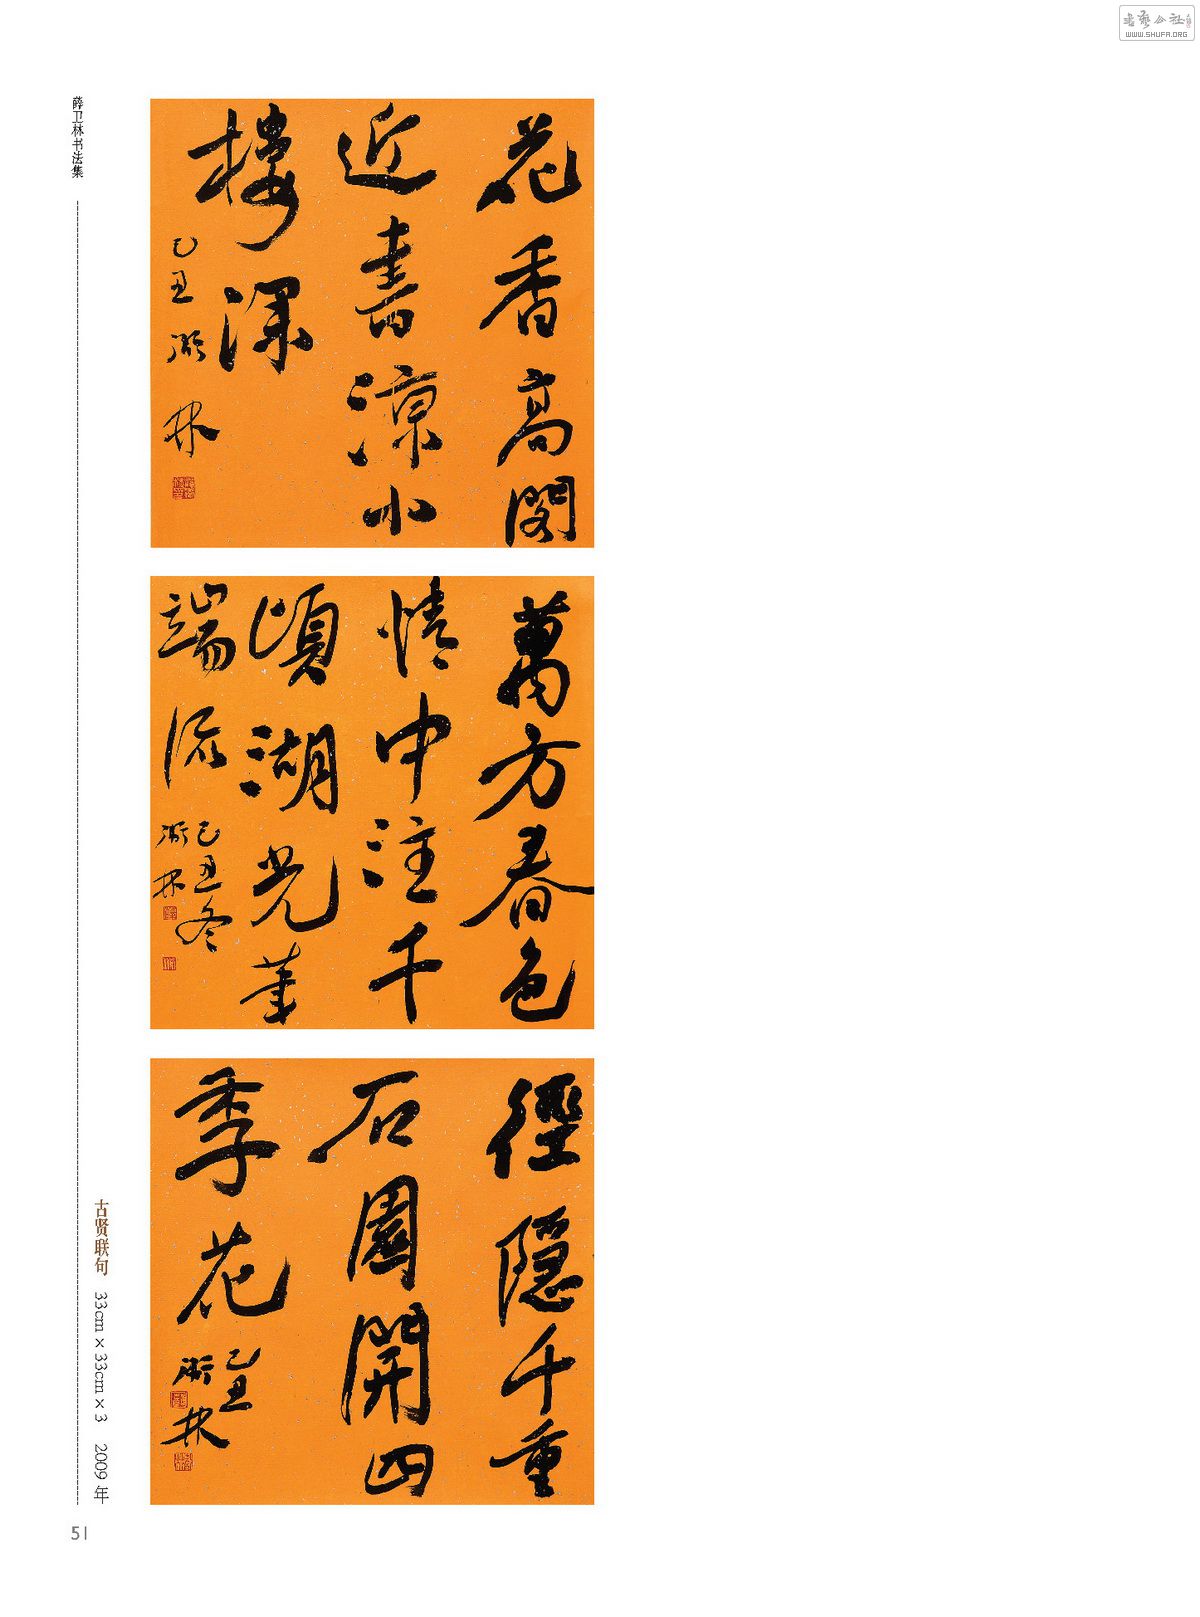 WWW.SHUFA.ORG
薛卫林书法集
花香高閣
近書涼小
樓深
乙丑衛
林
萬方春色
情中注千
頃湖光筆
端流
己丑冬
衛林
徑隱千重
石園開四
季花
己丑
衛林
古贤联句 33cm x 33cm x 3 2009 年
51